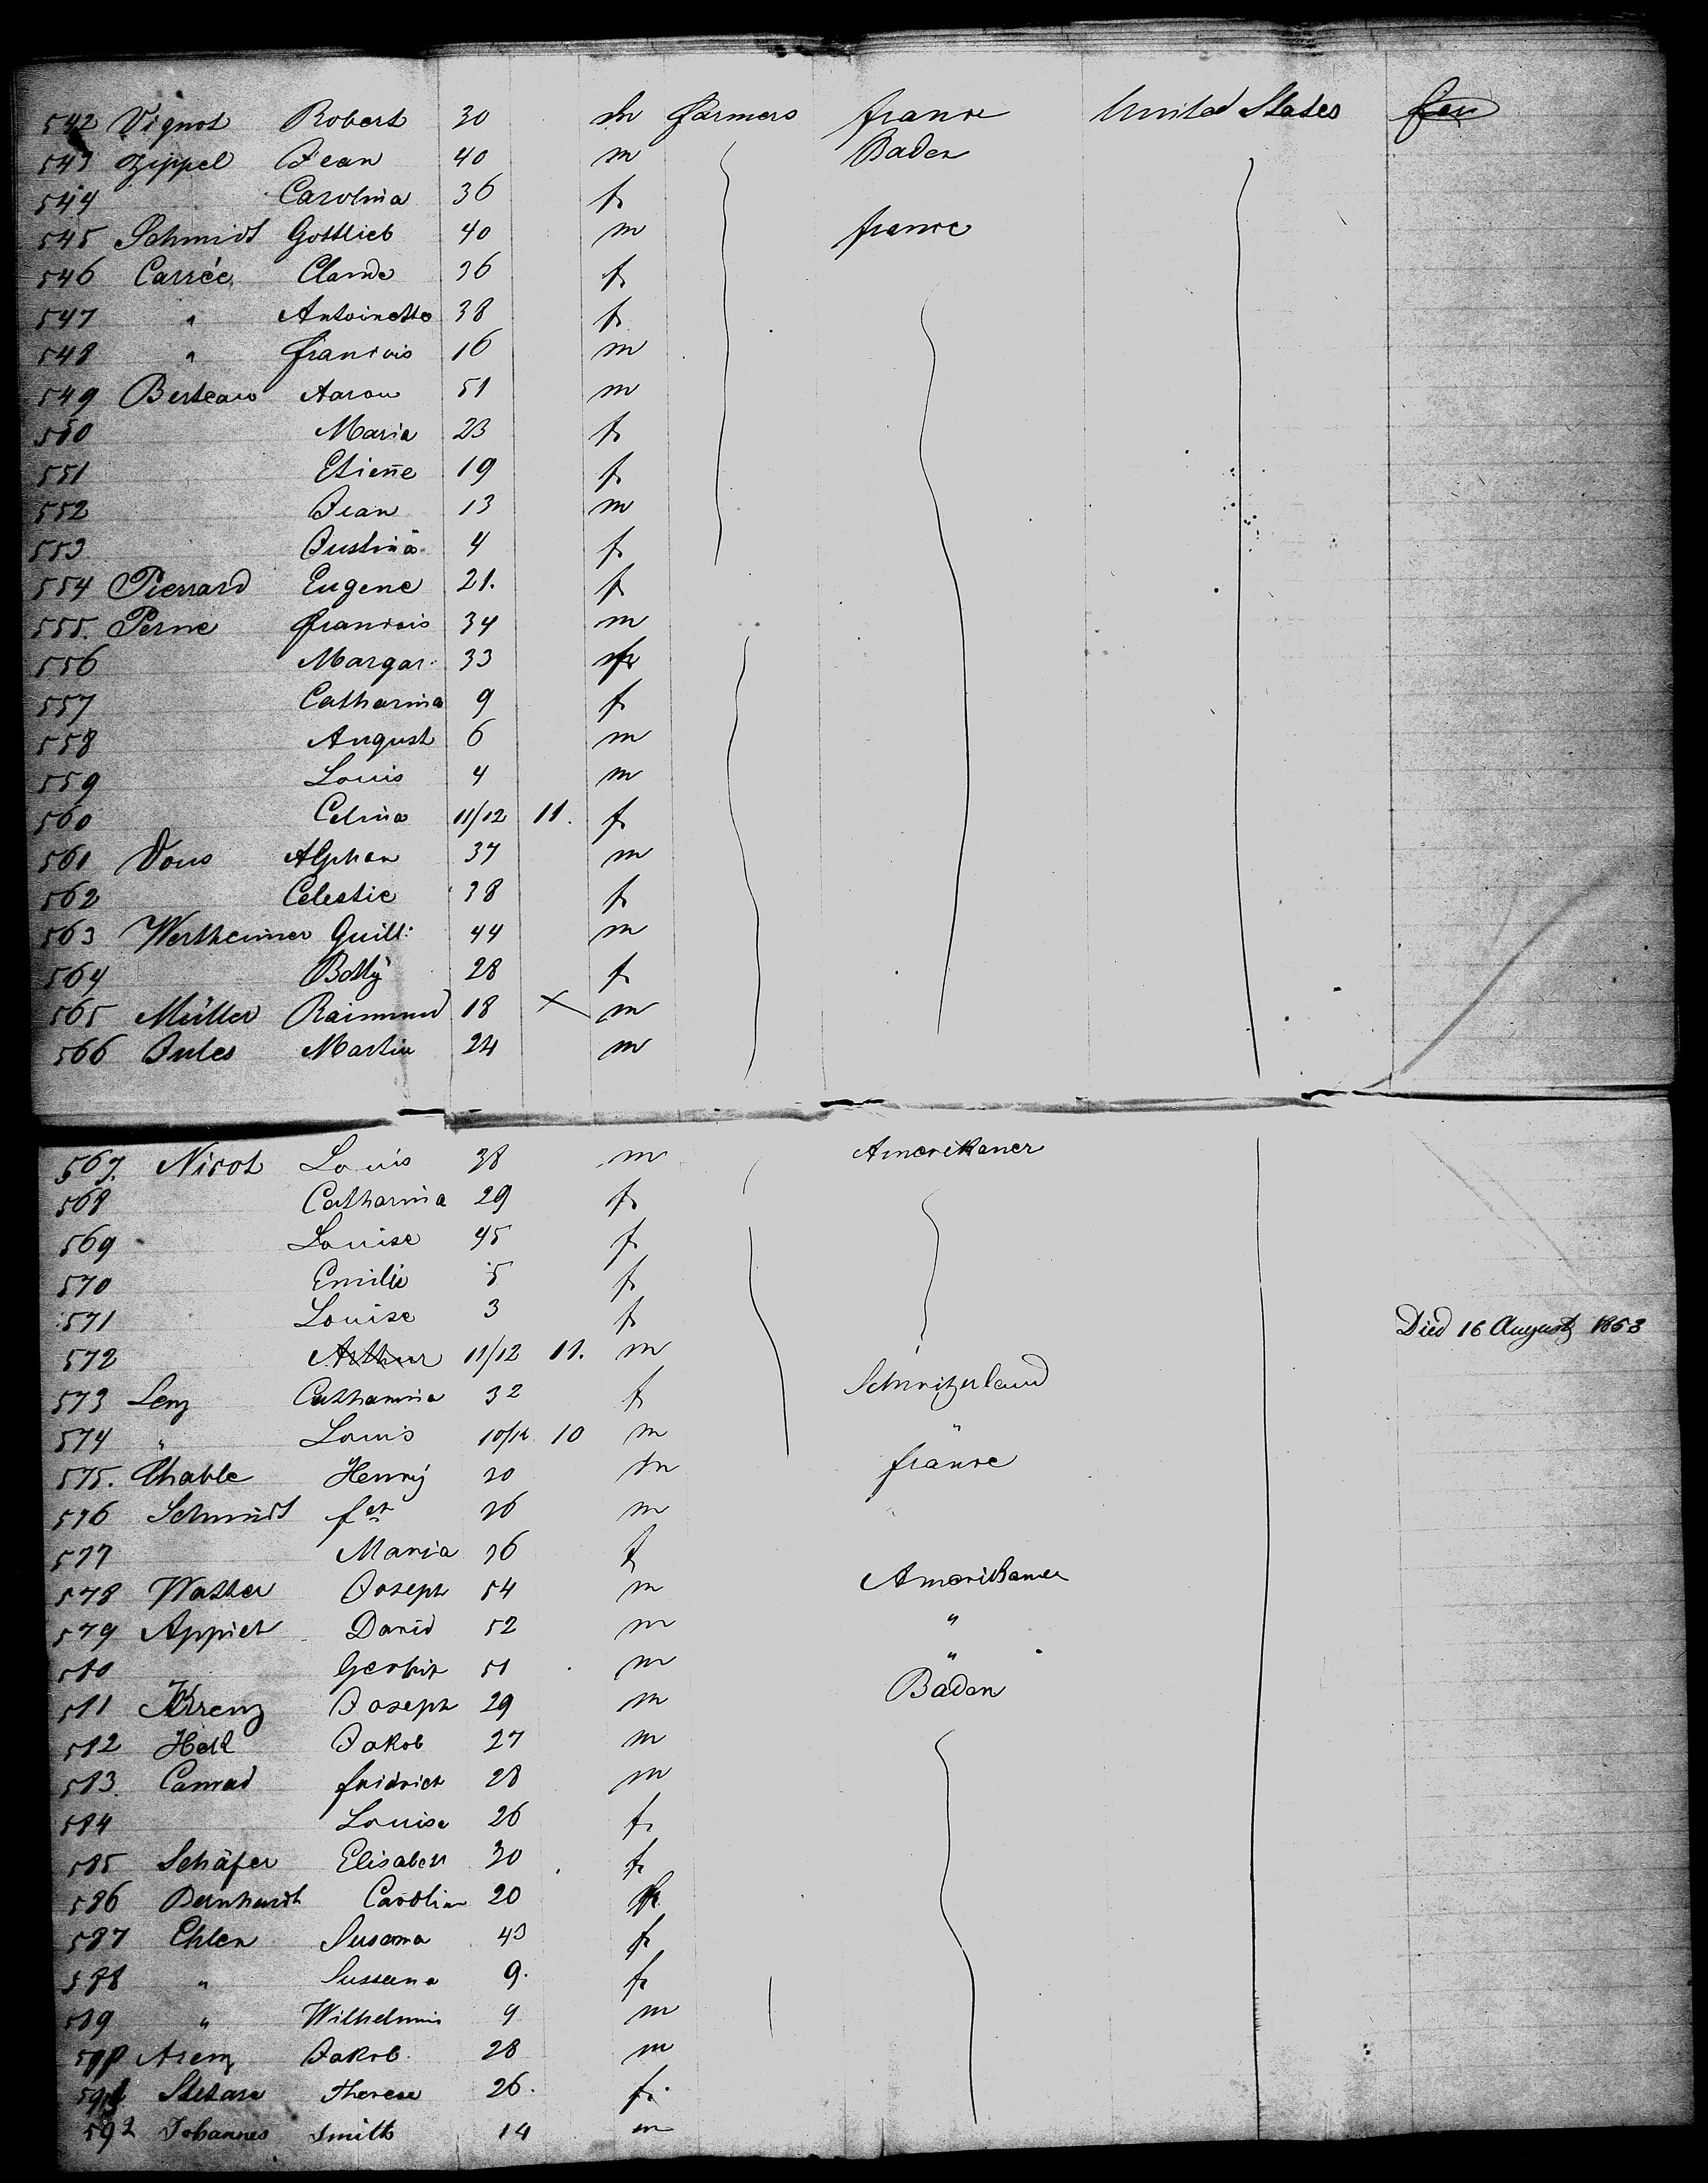 542 Vignot Robert 30 m farmers france United States
543 Zippel Jean 40 m Baden
544 Carolina 36 f
545 Schmidt Gottlieb 40 m france
546 Carrée Claude 36 f
547 " Antoinette 38 f
548 " francois 16 m
549 Berteau Aaron 51 m
550 Maria 23 f
551 Etieñe 19 f
552 Jean 13 m
553 Justina 4 f
554 Pierrard Eugene 21. f
555. Perne francois 34 m
556 Margar. 33 f
557 Catharina 9 f
558 August 6 m
559 Louis 4 m
560 Celina 11/12 11. f
561 Vous Alphon 37 m
562 Celestie 38 f
563 Wertheimer Guill: 44 m
564 Betty 28 f
565 Müller Raimund 18 x m
566 Jules Martin 24 m
567. Nicot Louis 38 m Amerikaner
568 Catharina 29 f
569 Louise 45 f
570 Emilie 5 f
571 Louise 3 f
572 Arthur 11/12 11. m Died 16 August 1853
573 Lenz Catharina 32 f Schwitzerland
574 " Louis 10/12 10 m "
575. Chable Henry 20 m france
576 Schmidt 26 m
577 Maria 26 f
578 Walther Joseph 54 m Amerikaner
579 Appich David 52 m "
580 51 m "
581 Krenz Joseph 29 m Baden
582 Heck Jakob 27 m
583. Conrad fridrich 28 m
584 Louise 26 f
585 Schäfer Elisabeth 30 f
586 Bernhardt Carolin 20 f
587 Ehlen Susanna 43 f
588 " Susanna 9. f
589 " Wilhelmin 9 m
590 Arenz Jakob 28 m
591 Therese 26. f.
592 Johannes Smith 14 m